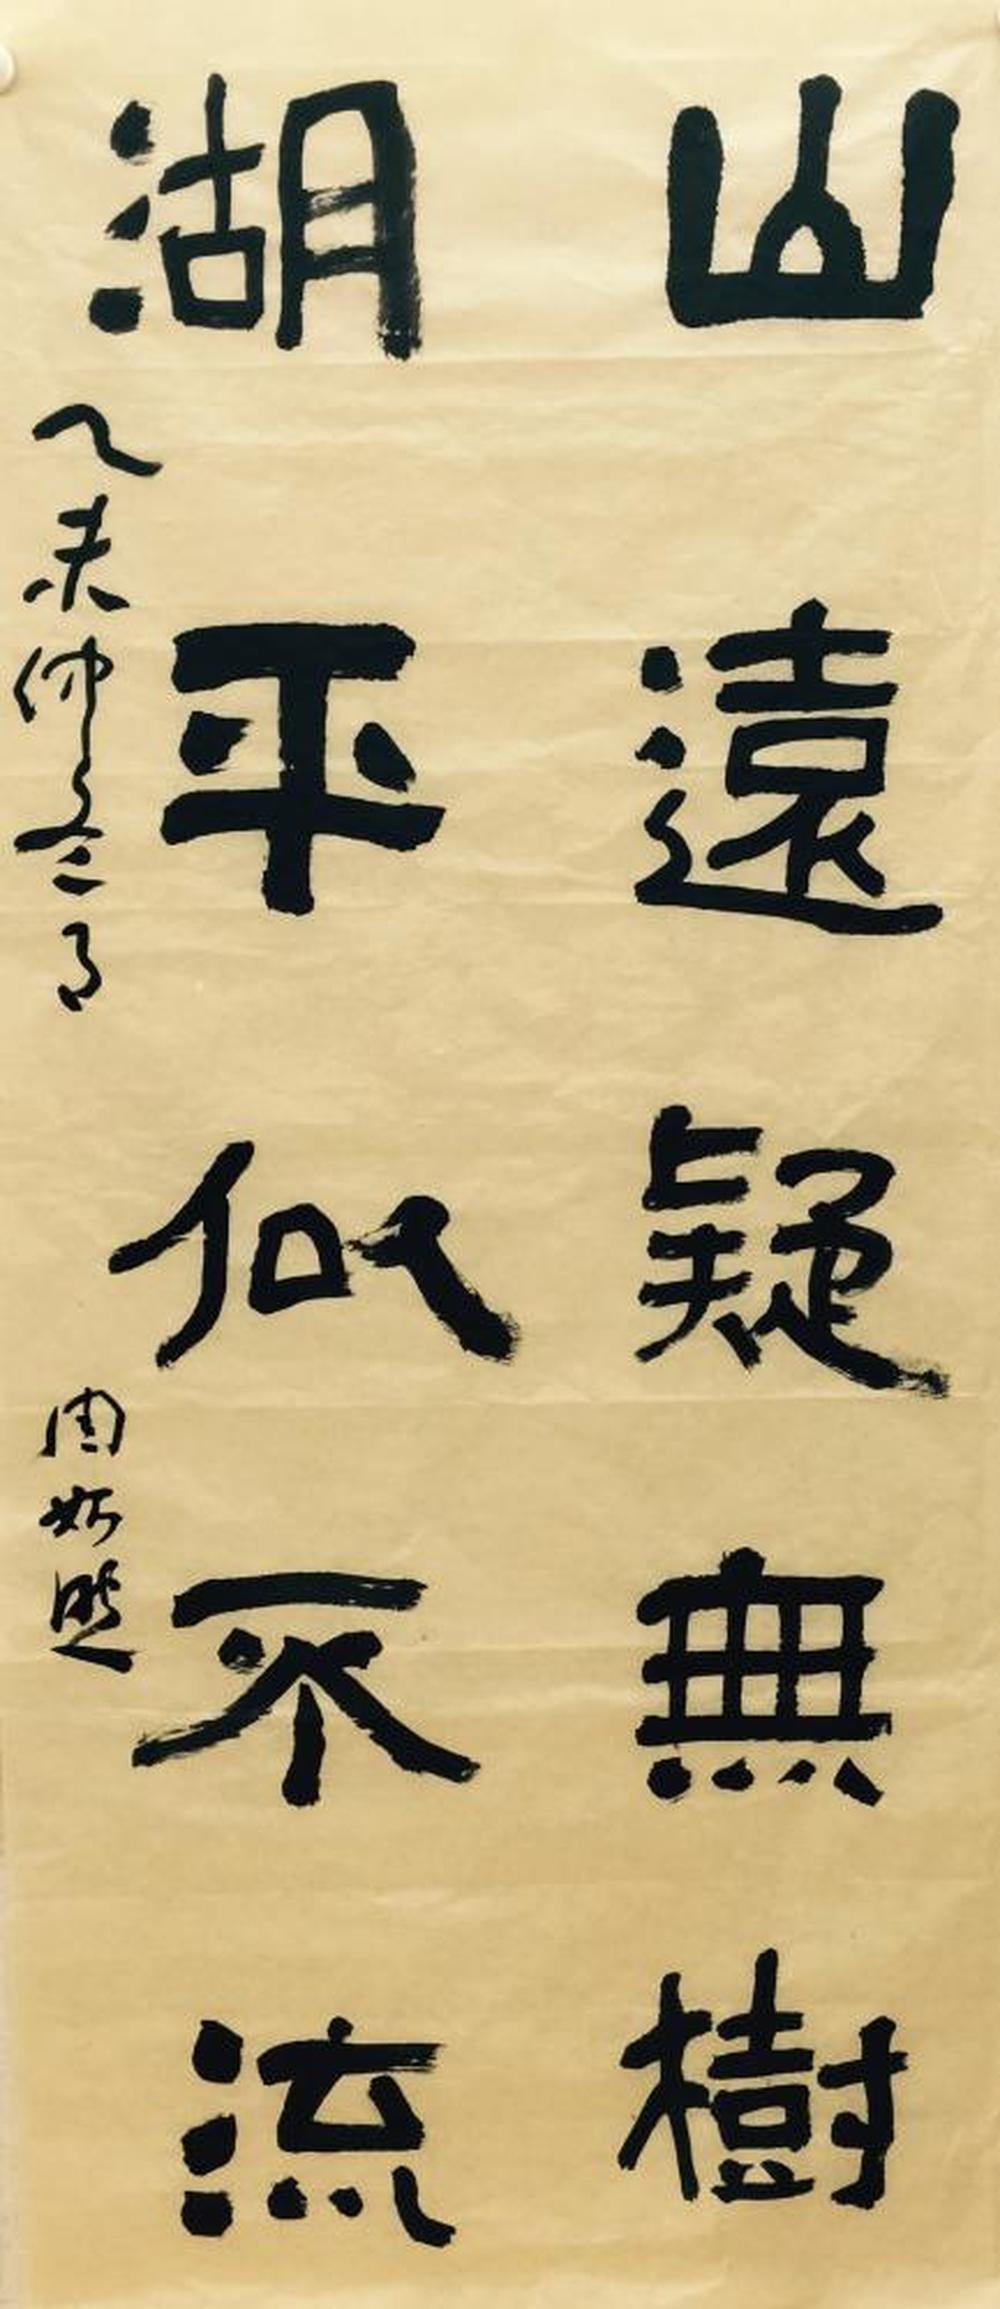 山遠疑無樹
湖平似不流
乙未仲冬之月
周如